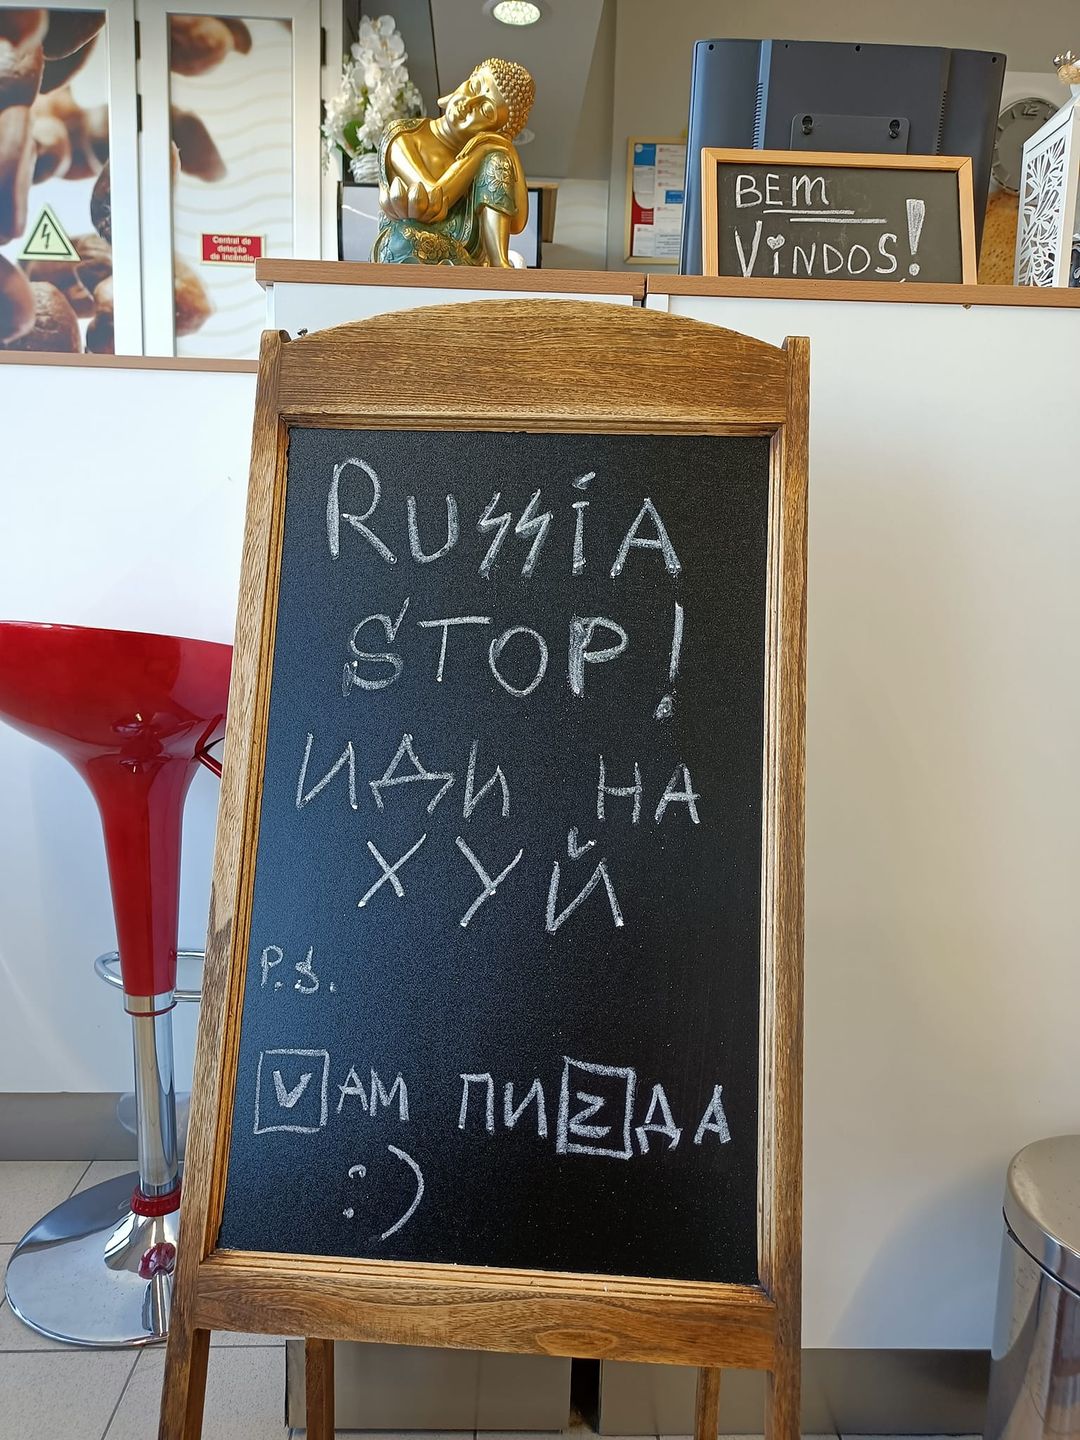 Central de
deteção
de incêndio
BEM
VINDOS!
RUSSIA
STOP!
ИДИ НА
ХУЙ
P.S.
VАМ ПИZДА
:)